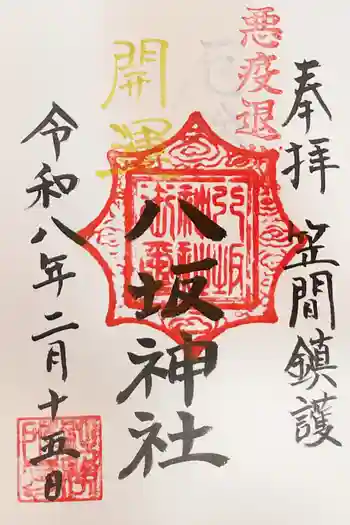 奉拝
笠間鎮護
悪疫退散
開運
八坂神社
令和八年二月十五日